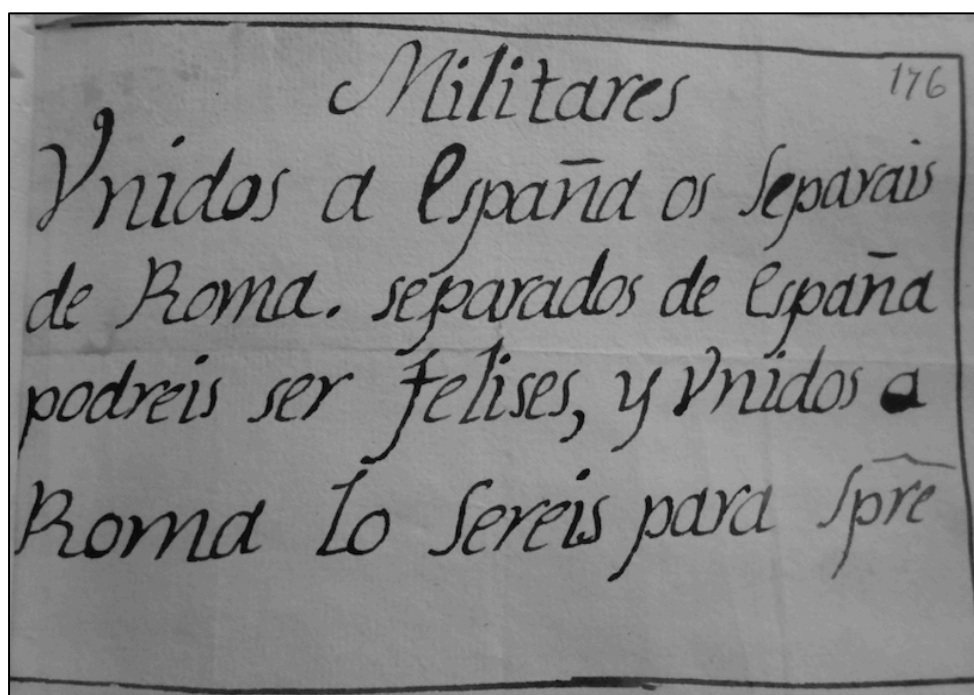 Militares
176
Vnidos a España os separais
de Roma. separados de España
podreis ser felises, y vnidos a
Roma lo sereis para spre